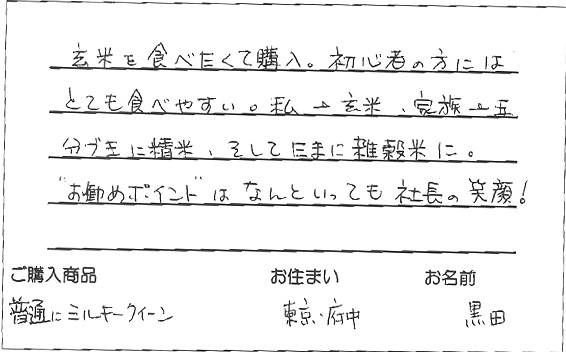 玄米を食べたくて購入。初心者の方には
とても食べやすい。私→玄米、家族→五
分づきに精米、そしてたまに雑穀米に。
"お勧めポイント"はなんといっても社長の笑顔!
ご購入商品 お住まい お名前
普通にミルキークイーン 東京・府中 黒田